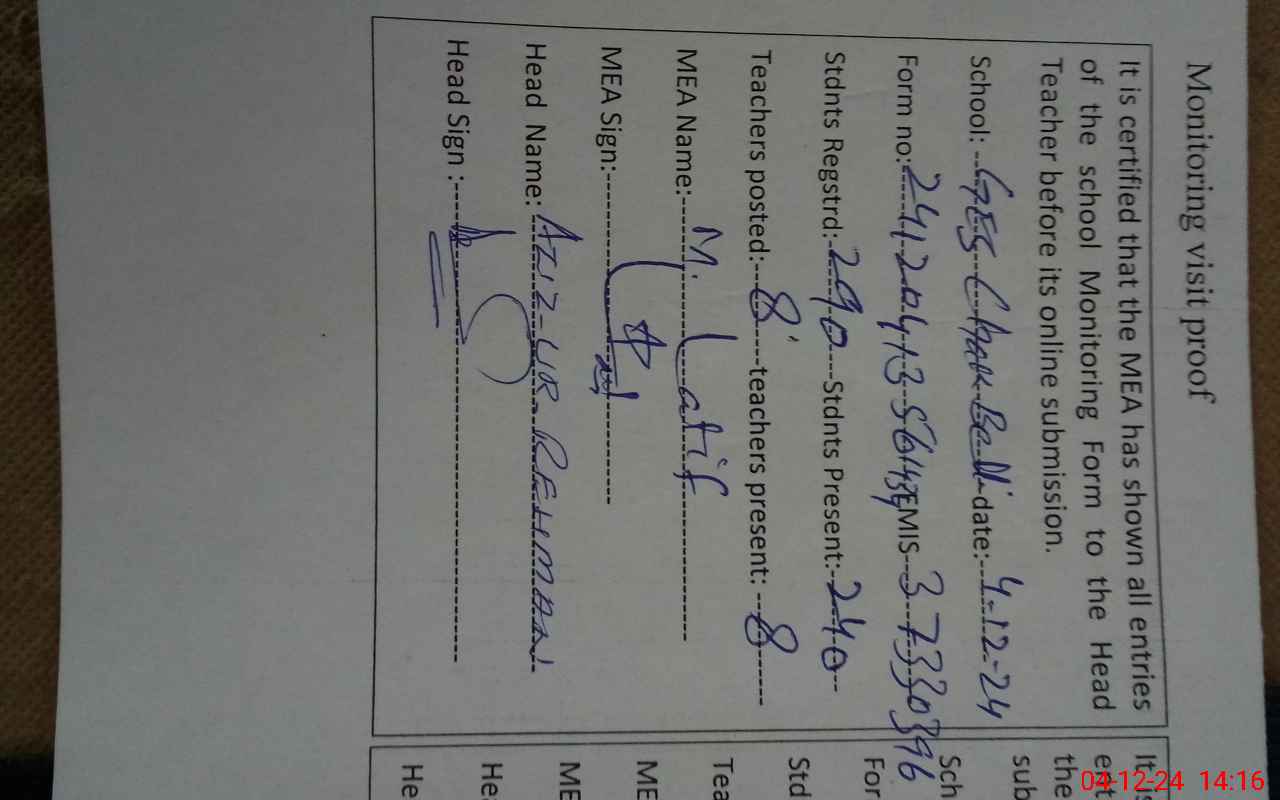 Monitoring visit proof
It is certified that the MEA has shown all entries
of the school Monitoring Form to the Head
Teacher before its online submission.
School: GES Chak Beli date: 4-12-24
Form no: EMIS 37330396
Stdnts Regstrd: 290 Stdnts Present: 240
Teachers posted: 8 teachers present: 8
MEA Name: M. Latif
MEA Sign:
Head Name: AZIZ-UR-REHMAN
Head Sign :
It is
ext
the
sub
Sch
For
Std
Tea
ME
ME
Hea
He
04-12-24 14:16